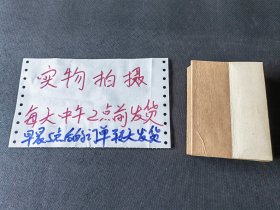 实物拍摄
每天中午2点前发货
早晨5点后的订单天发货